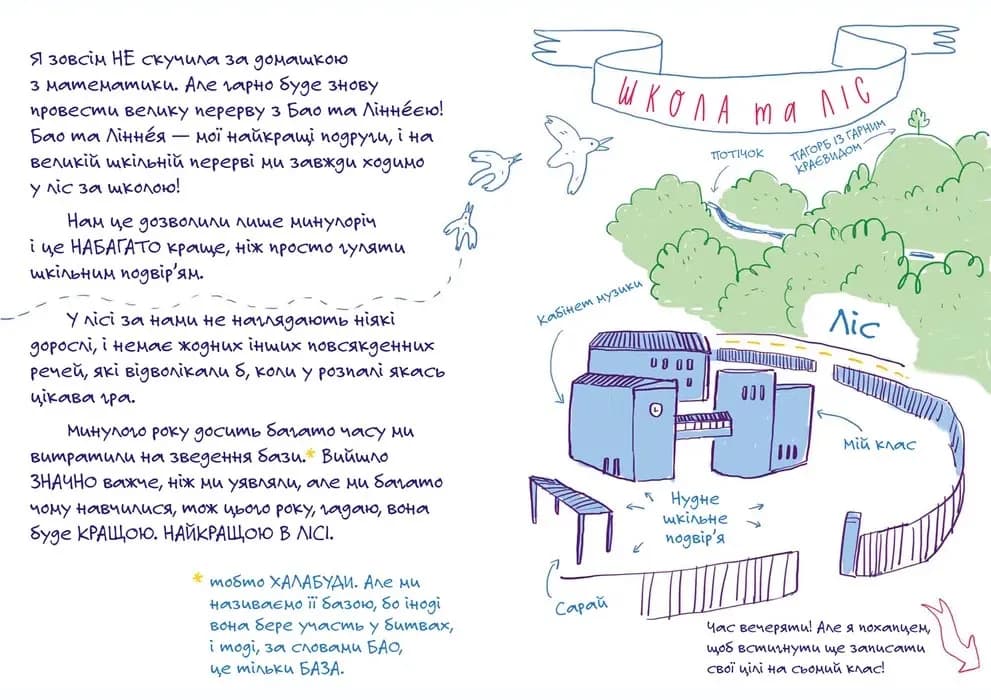 Я зовсім НЕ скучила за домашкою
з математики. Але гарно буде знову
провести велику перерву з Бао та Лінне́єю!
Бао та Лінне́я — мої найкращі подруги, і на
великій шкільній перерві ми завжди ходимо
у ліс за школою!
Нам це дозволили лише минулоріч
і це НАБАГАТО краще, ніж просто гуляти
шкільним подвір’ям.
У лісі за нами не наглядають ніякі
дорослі, і немає жодних інших повсякденних
речей, які відволікали б, коли у розпалі якась
цікава гра.
Минулого року досить багато часу ми
витратили на зведення бази.* Вийшло
ЗНАЧНО важче, ніж ми уявляли, але ми багато
чому навчилися, тож цього року, гадаю, вона
буде КРАЩОЮ. НАЙКРАЩОЮ В ЛІСІ.
* тобто ХАЛАБУДИ. Але ми
називаємо її базою, бо іноді
вона бере участь у битвах,
і тоді, за словами БАО,
це тільки БАЗА.
ШКОЛА та ЛІС
ПОТІЧОК
ПАГОРБ ІЗ ГАРНИМ
КРАЄВИДОМ
Кабінет музики
Ліс
Мій клас
Нудне
шкільне
подвір’я
Сарай
Час вечеряти! Але я похапцем,
щоб встигнути ще записати
свої цілі на сьомий клас!